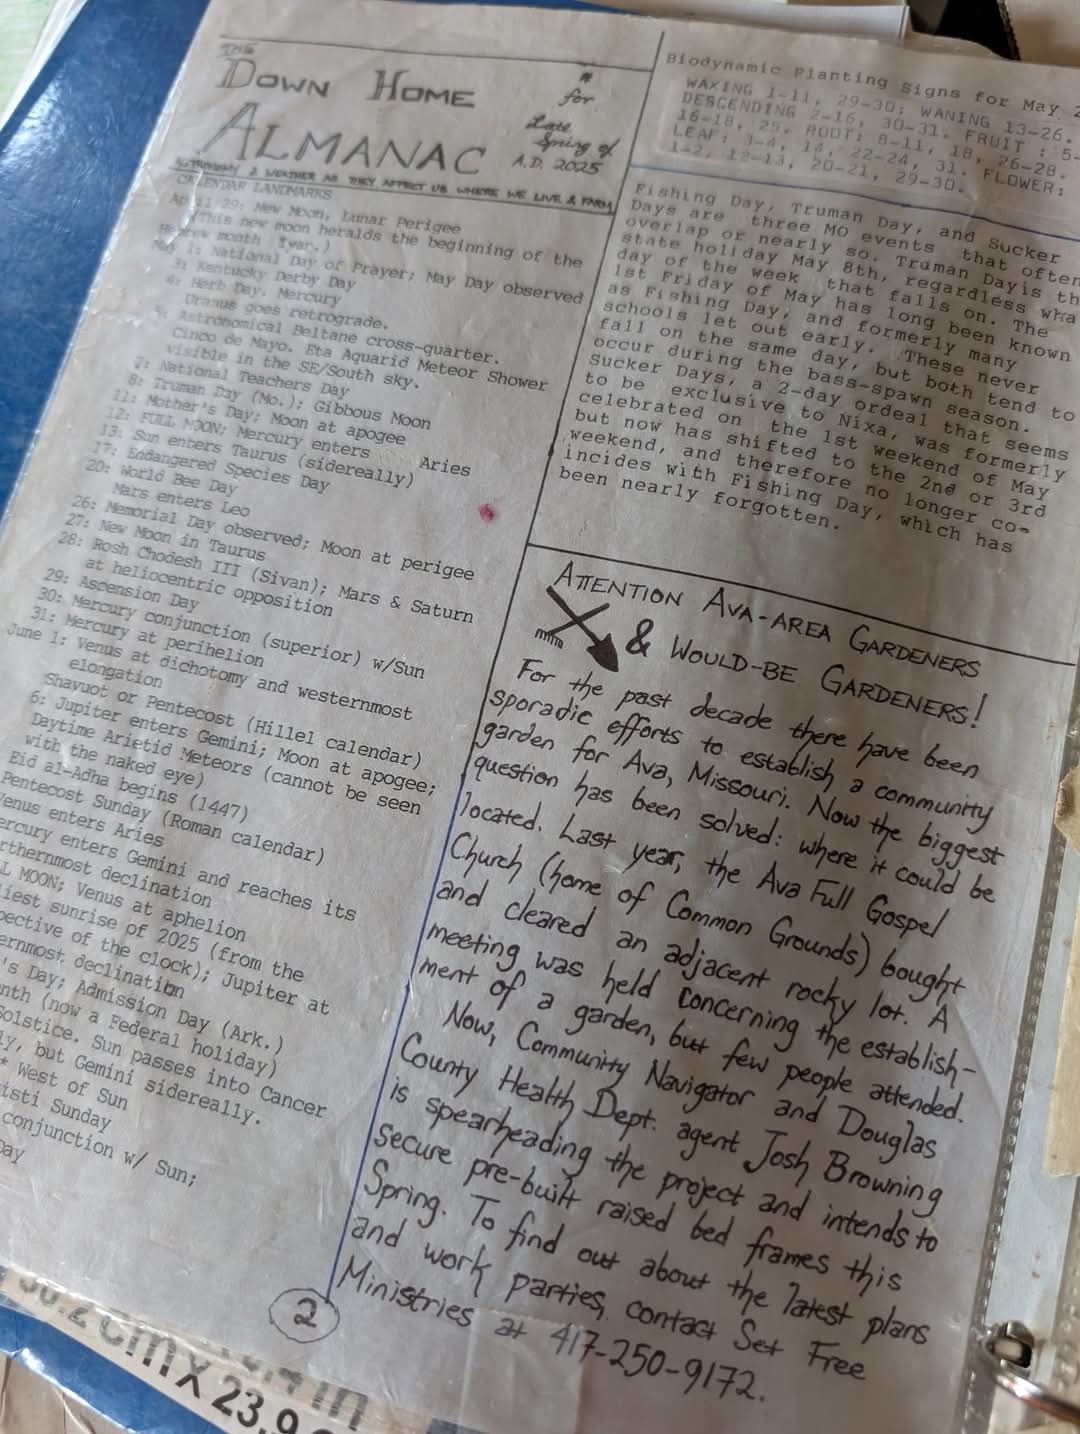 THE
DOWN HOME
ALMANAC
for
Late
Spring of
A.D. 2025
ASTRONOMY & WEATHER AS THEY AFFECT US WHERE WE LIVE & FARM
CALENDAR LANDMARKS
April 29: New Moon, Lunar Perigee
(This new moon heralds the beginning of the
Hebrew month Iyar.)
1: National Day of Prayer; May Day observed
3: Kentucky Derby Day
4: Herb Day. Mercury
Uranus goes retrograde.
Astronomical Beltane cross-quarter.
Cinco de Mayo. Eta Aquarid Meteor Shower
visible in the SE/South sky.
7: National Teachers Day
8: Truman Day (Mo.); Gibbous Moon
11: Mother's Day; Moon at apogee
12: FULL MOON; Mercury enters Aries
13: Sun enters Taurus (sidereally)
17: Endangered Species Day
20: World Bee Day
Mars enters Leo
26: Memorial Day observed; Moon at perigee
27: New Moon in Taurus
28: Rosh Chodesh III (Sivan); Mars & Saturn
at heliocentric opposition
29: Ascension Day
30: Mercury conjunction (superior) w/Sun
31: Mercury at perihelion
June 1: Venus at dichotomy and westernmost
elongation
Shavuot or Pentecost (Hillel calendar)
6: Jupiter enters Gemini; Moon at apogee;
Daytime Arietid Meteors (cannot be seen
with the naked eye)
Eid al-Adha begins (1447)
Pentecost Sunday (Roman calendar)
Venus enters Aries
ercury enters Gemini and reaches its
rthernmost declination
L MOON; Venus at aphelion
liest sunrise of 2025 (from the
pective of the clock); Jupiter at
ernmost declination
's Day; Admission Day (Ark.)
nth (now a Federal holiday)
Solstice. Sun passes into Cancer
ly, but Gemini sidereally.
* West of Sun
isti Sunday
conjunction w/ Sun;
Day
2
Biodynamic Planting Signs for May 2
WAXING 1-11, 29-30; WANING 13-26.
DESCENDING 2-16, 30-31. FRUIT : 5-
16-18, 25. ROOT: 8-11, 18, 26-28.
LEAF: 3-4, 14, 22-24, 31. FLOWER:
1-2, 12-13, 20-21, 29-30.
Fishing Day, Truman Day, and Sucker
Days are three MO events that often
overlap or nearly so. Truman Dayis th
state holiday May 8th, regardless wha
day of the week that falls on. The
1st Friday of May has long been known
as Fishing Day, and formerly many
schools let out early. These never
fall on the same day, but both tend to
occur during the bass-spawn season.
Sucker Days, a 2-day ordeal that seems
to be exclusive to Nixa, was formerly
celebrated on the 1st weekend of May
but now has shifted to the 2nd or 3rd
weekend, and therefore no longer co-
incides with Fishing Day, which has
been nearly forgotten.
ATTENTION AVA-AREA GARDENERS
& WOULD-BE GARDENERS!
For the past decade there have been
sporadic efforts to establish a community
garden for Ava, Missouri. Now the biggest
question has been solved: where it could be
located. Last year, the Ava Full Gospel
Church (home of Common Grounds) bought
and cleared an adjacent rocky lot. A
meeting was held concerning the establish-
ment of a garden, but few people attended.
Now, Community Navigator and Douglas
County Health Dept. agent Josh Browning
is spearheading the project and intends to
secure pre-built raised bed frames this
Spring. To find out about the latest plans
and work parties, contact Set Free
Ministries at 417-250-9172.
cm x 23.9
in